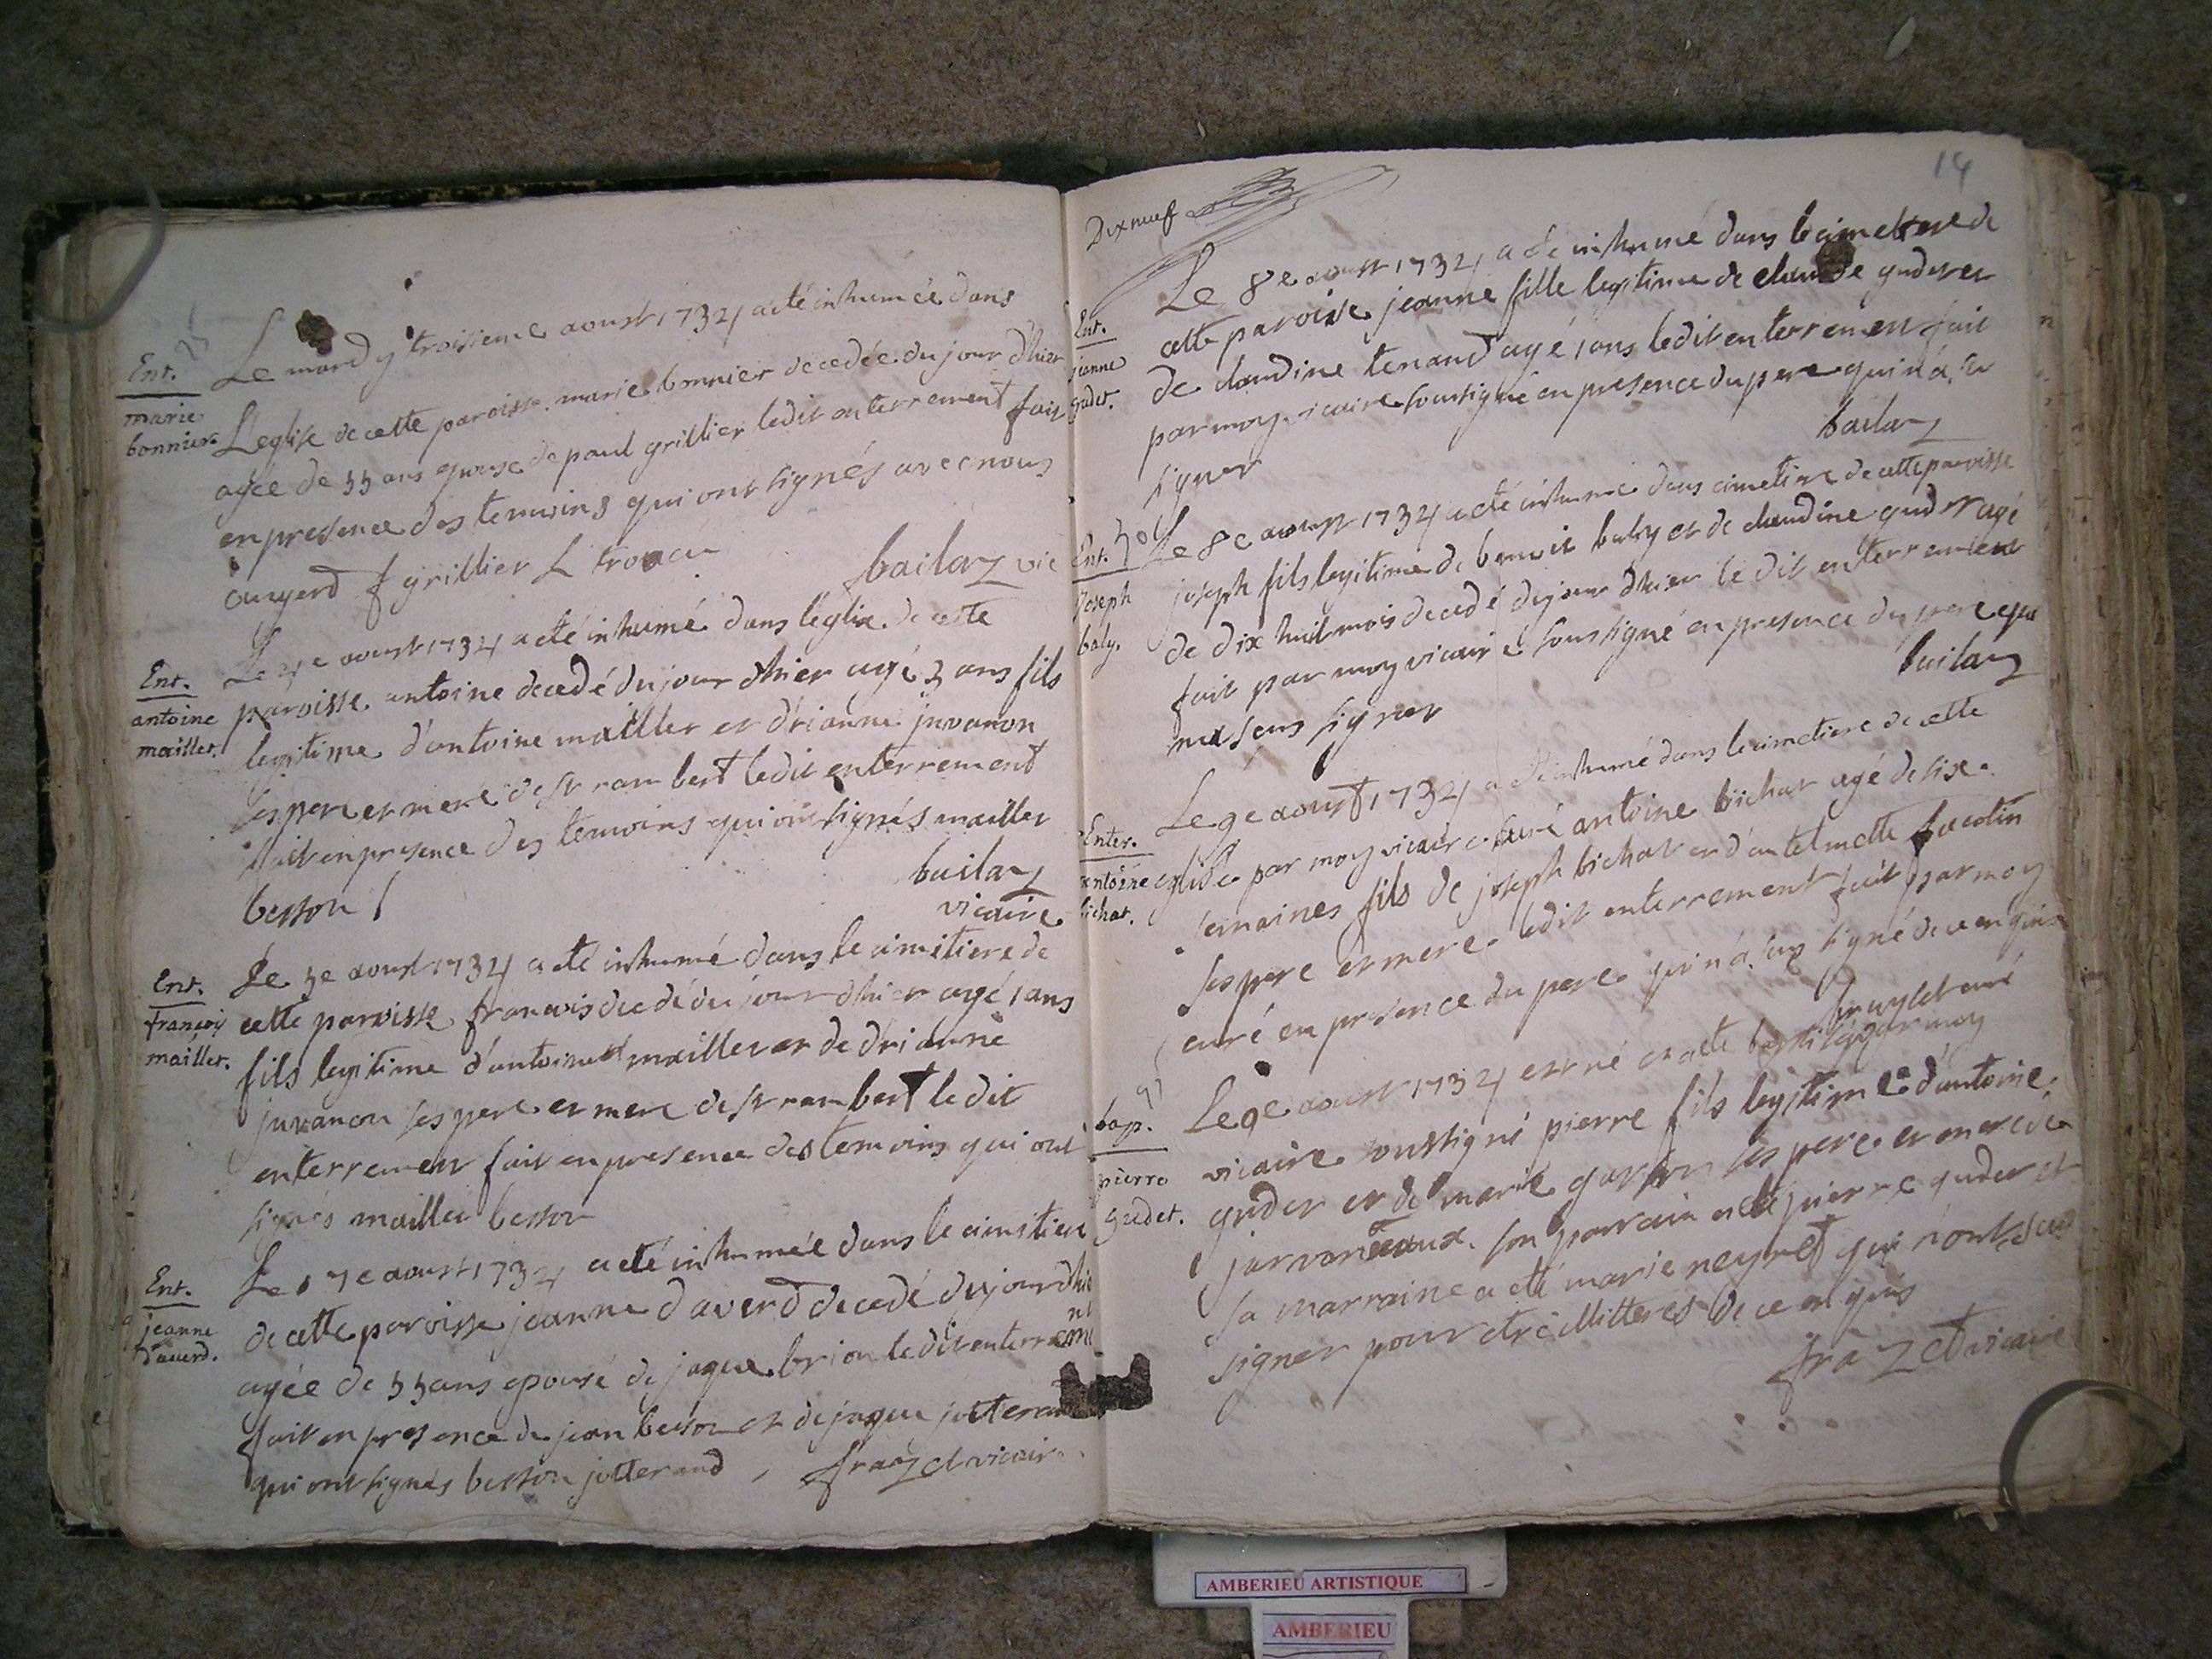 Ent.
marie
bonnier.
Le mardy troisieme aoust 1734 a eté inhumée dans
L'eglise de cette paroisse marie bonnier decedée du jour d'hier
agée de 55 ans epouse de paul grillier ledit enterrement fait
en presence des temoins qui ont signés avec nous
f grillier L
bailaz vic
Ent.
antoine
mailler.
Le 4e aoust 1734 a eté inhumé dans léglise de cette
paroisse antoine decedé du jour dhier agé 3 ans fils
legitime d'antoine mailler et driane juvanon
ses pere et mere de st rambert ledit enterrement
fait en presence des temoins qui ont signés mailler
besson
bailaz
vicaire
Ent.
françoy
mailler.
Le 5e aoust 1734 a eté inhumé dans le cimitiere de
cette paroisse francois decedé du jour dhier agé 1 ans
fils legitime d'antoine mailler et de driane
juvanon ses pere et mere de st rambert le dit
enterrement fait en presence des temoins qui ont
signés mailler besson
Ent.
jeanne
d'averd.
Le 7e aoust 1734 a eté inhumée dans le cimitiere
de cette paroisse jeanne daverd decedé du jour dhie
agée de 55 ans epouse de jaque brion le dit enterreme
nt
fait en presence de jean besson et de jaque jotterand
qui ont signés besson jotterand frazet vicaire
Dixneuf
14
Ent.
jeanne
gudet.
Le 8e aoust 1734 a eté inhumé dans le cimetiere de
cette paroisse jeanne fille legitime de claude gudet et
de claudine tenand agé 1 ans ledit enterrement fait
par moy vicaire soussigné en presence du pere qui n'a su
signer
bailaz
Ent.
Joseph
baly.
Le 8e aoust 1734 a eté inhumé dans cimetiere de cette paroisse
joseph fils legitime de benoit baly et de claudine gudet agé
de dix huit mois decedé du jour dhier le dit enterrement
fait par moy vicaire soussigné en presence du pere qui
na sceus signer
bailaz
Enter.
antoine
bichat.
Le 9e aoust 1734 a eté inhumé dans le cimetiere de cette
eglise par moy vicaire curé antoine bichat agé de six
semaines fils de joseph bichat et d'antelmette
ses pere et mere ledit enterrement fait par moy
curé en presence du pere qui n'a sus signé de ce enquis
curé
bap.
pierre
gudet.
Le 9e aoust 1734 est né et a eté baptisé par moy
vicaire soussigné pierre fils legitime d'antoine
gudet et de marie ses pere et mere de
son parrain a eté pierre gudet et
sa marraine a eté marie neyret qui n'ont sceus
signer pour etre illitteres de ce enquis
frazet vicaire
AMBERIEU ARTISTIQUE
AMBERIEU